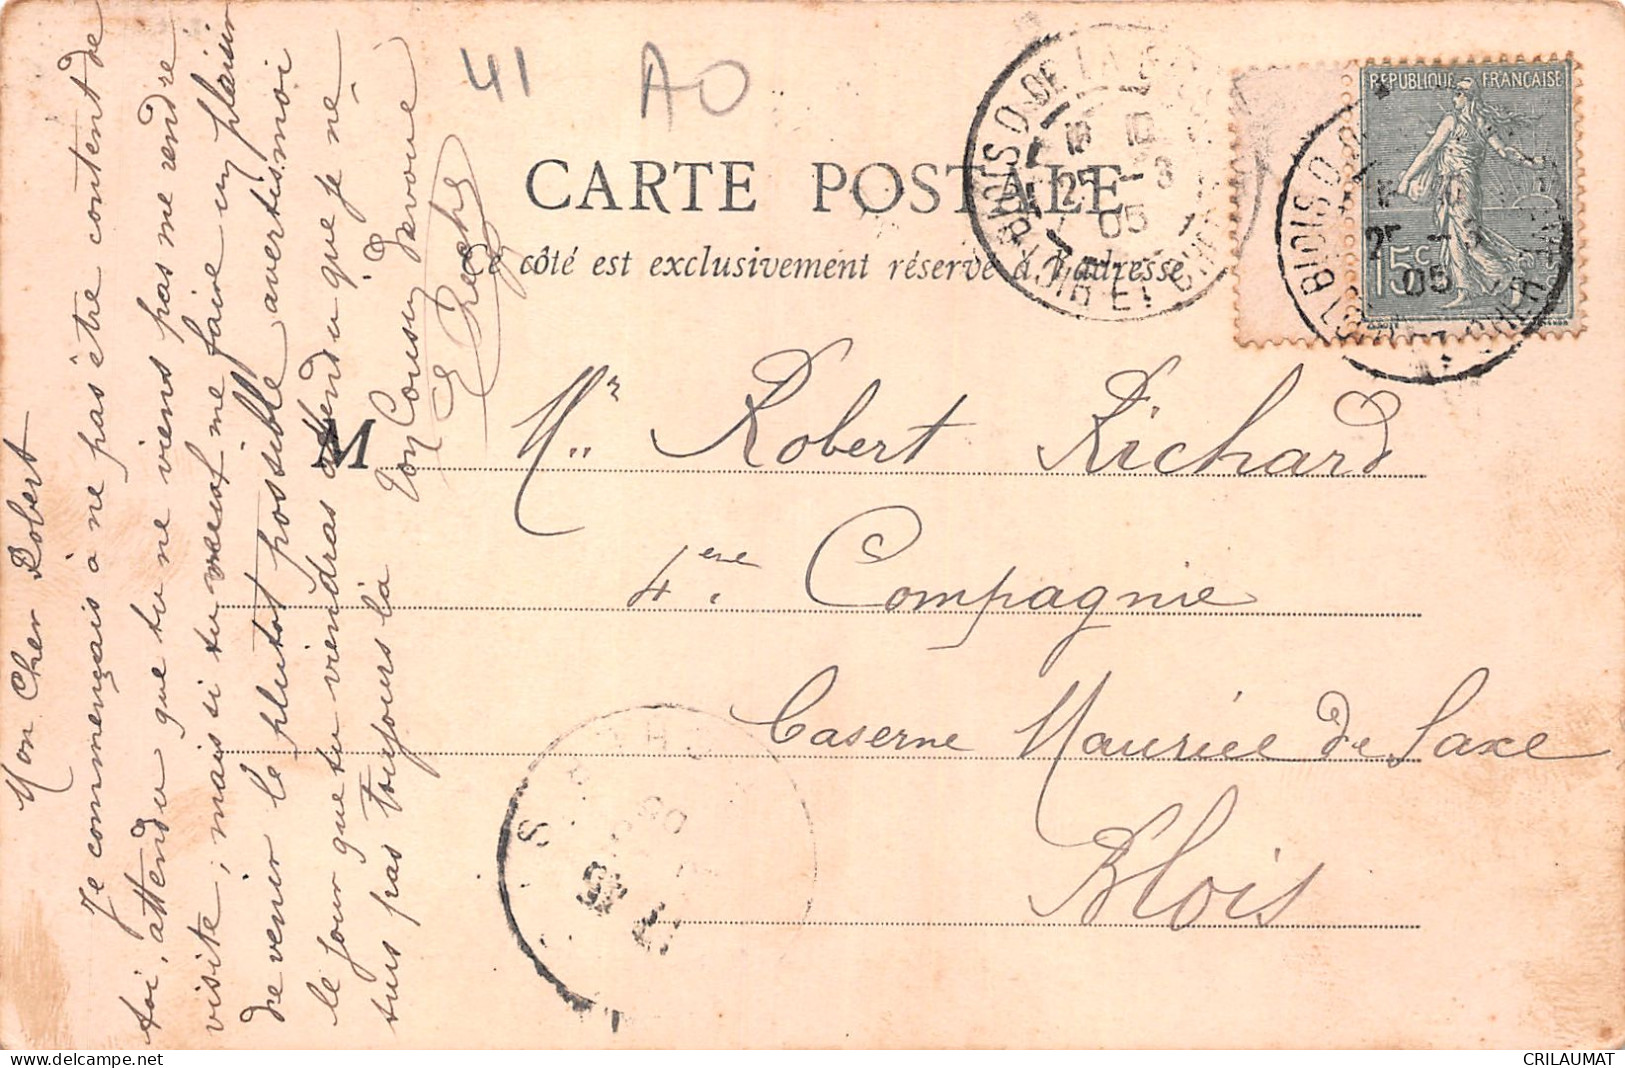 41 AO
CARTE POSTALE
Ce côté est exclusivement réservé à l'adresse
REPUBLIQUE FRANÇAISE
15c
BLOIS Q. DE LA
LOIR ET CHER
25 -3
05
BLOIS Q.
25 -3
05
Mon Cher Robert
Je commençais à ne pas être content de
toi, attendu que tu ne viens pas me rendre
visite, mais si tu me faire un plaisir
de venir le plutot possible avertis moi
le jour que tu viendras attendu que je ne
suis pas toujours là
Ton Cousin dévoué
M
Mr Robert Richard
4ème Compagnie
Caserne Maurice de Saxe
Blois
CRILAUMAT